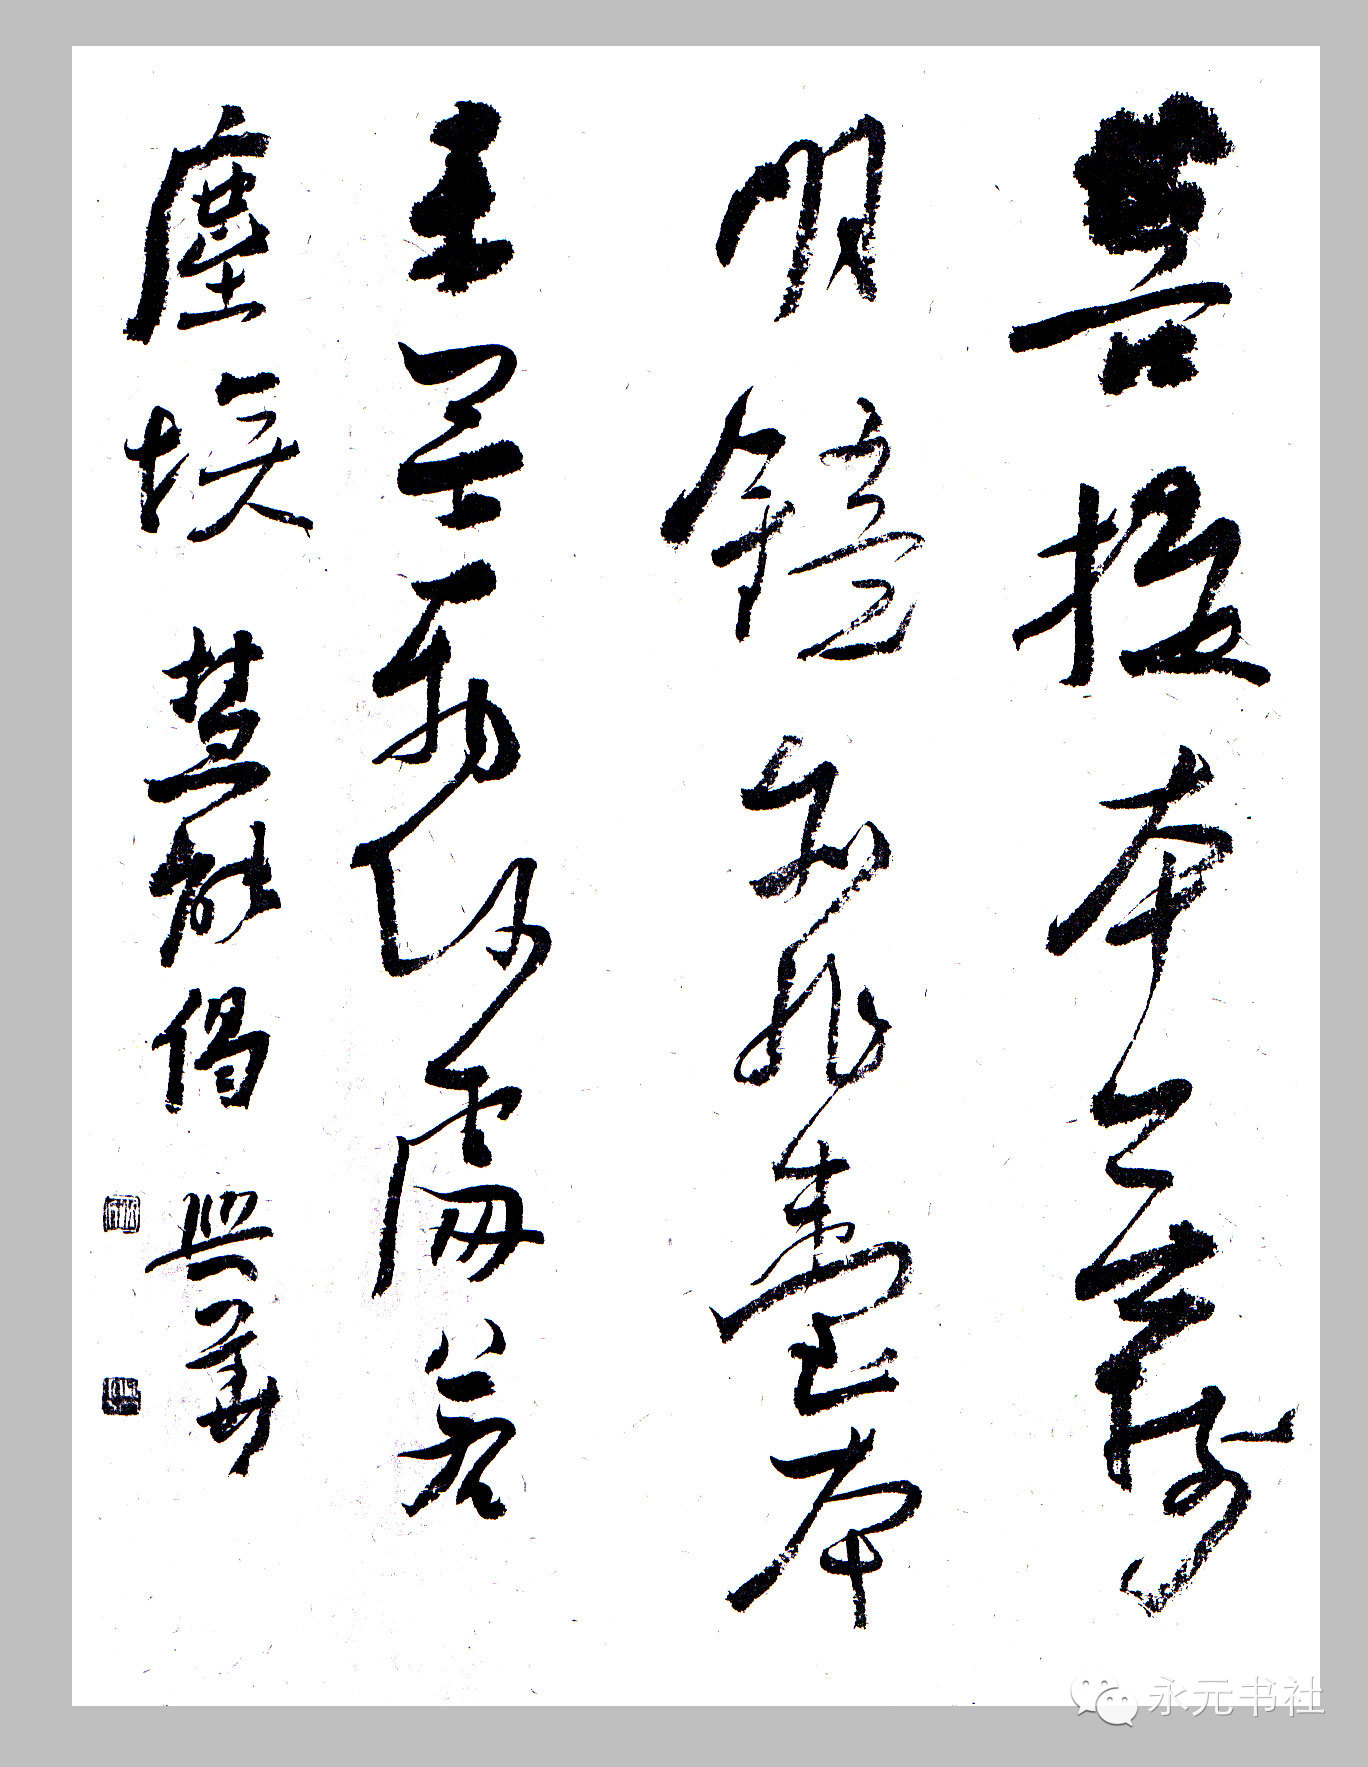 菩提本無樹
明鏡亦非臺本
来無一物何處惹
塵埃 慧能偈 興華
永元书社